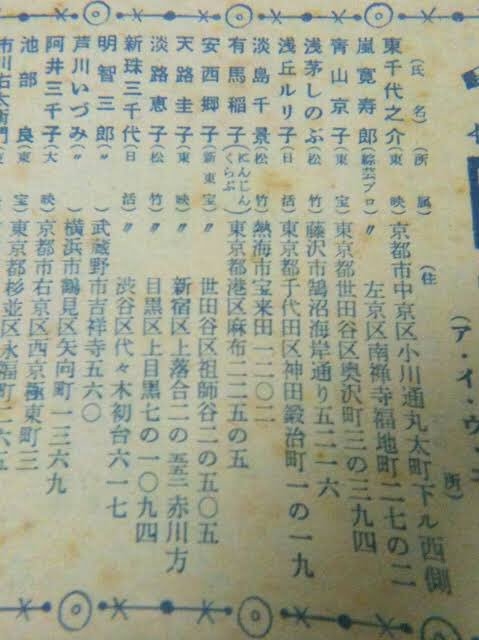 (ア・イ・ウ・エ
(氏名)(所属)(住所)
東千代之介(東映)京都市中京区小川通丸太町下ル西側
嵐寛寿郎(綜芸プロ)〃左京区南禅寺福地町二七の二
青山京子(東宝)東京都世田谷区奥沢町三の三九四
浅茅しのぶ(松竹)藤沢市鵠沼海岸通り五二一六
浅丘ルリ子(日活)東京都千代田区神田鍛治町一の一九
淡島千景(松竹)熱海市宝来田一二〇二
有馬稲子(にんじんくらぶ)東京都港区麻布二二五の五
安西郷子(新東宝)〃世田谷区祖師谷二の五〇五
天路圭子(東映)〃新宿区上落合二の五五三赤川方
淡路恵子(松竹)〃目黒区上目黒七の一〇九四
新珠三千代(日活)〃渋谷区代々木初台六一七
明智三郎(〃)武蔵野市吉祥寺五六〇
芦川いづみ(〃)横浜市鶴見区矢向町一三六九
阿井三千子(大映)京都市右京区西京極東町三
池部良(東宝)東京都杉並区永福町二六五
市川右太衛門(東